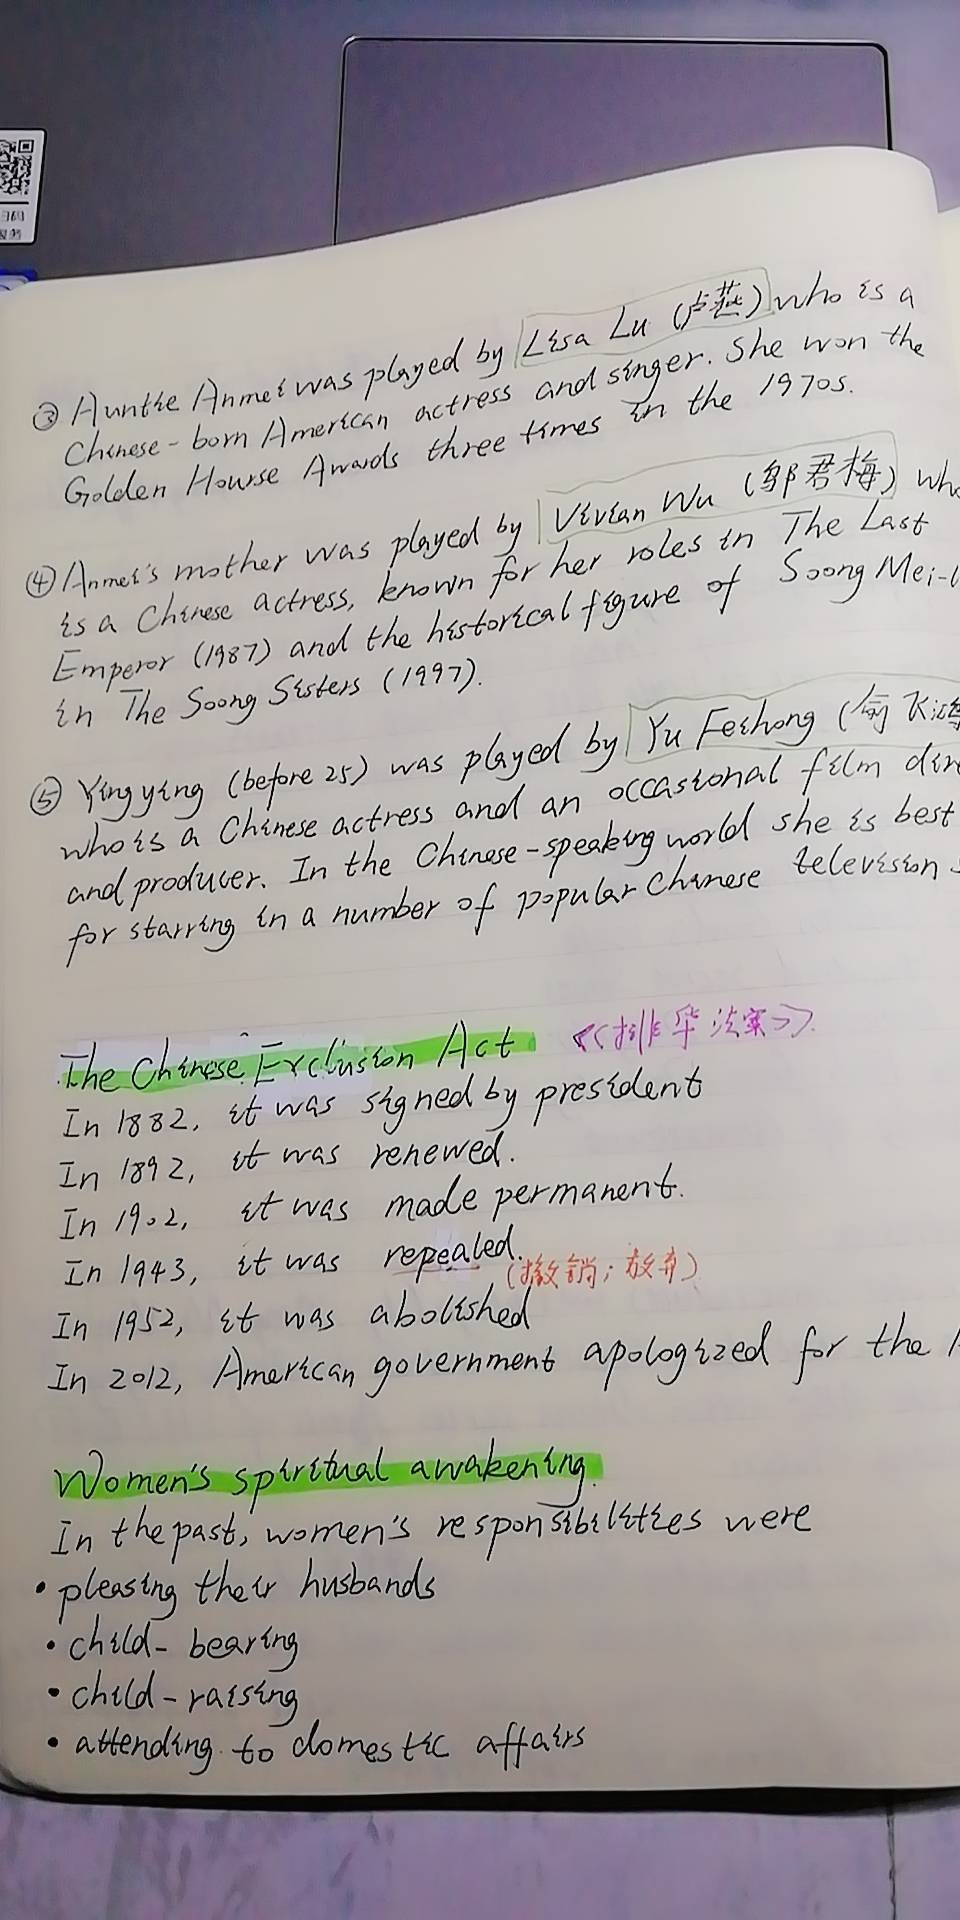 ③ Auntie Anmei was played by Lisa Lu (卢燕) who is a
Chinese-born American actress and singer. She won the
Golden Hourse Awards three times in the 1970s.
④ Anmei's mother was played by Vivian Wu (邬君梅) who
is a Chinese actress, known for her roles in The Last
Emperor (1987) and the historical figure of Soong Mei-l
in The Soong Sisters (1997).
⑤ Yingying (before 25) was played by Yu Feihong (俞飞鸿
who is a Chinese actress and an occasional film dire
and producer. In the Chinese-speaking world she is best
for starring in a number of popular Chinese television s
The Chinese Exclusion Act 《排华法案》.
In 1882, it was signed by president
In 1892, it was renewed.
In 1902, it was made permanent.
In 1943, it was repealed. (撤销;放弃)
In 1952, it was abolished
In 2012, American government apologized for the A
Women's spiritual awakening.
In the past, women's responsibilities were
• pleasing their husbands
• child-bearing
• child-raising
• attending to domestic affairs